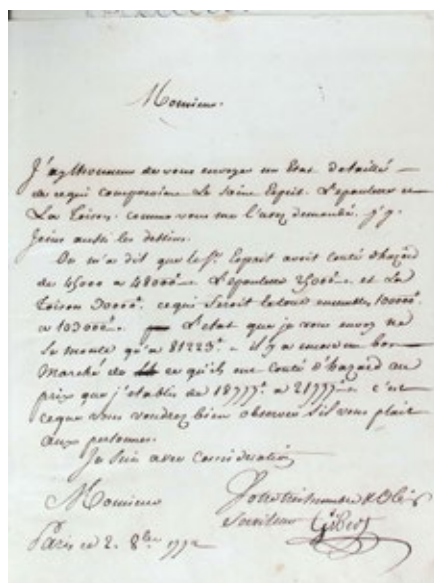 Monsieur.
J'ay l'honneur de vous envoyer un Etat detaillé
de ce qui compose le Saint Esprit. L'epaulette et
La Toison. comme vous me l'avez demandé. j'y
Joins aussi les dessins.
On m'a dit que le St. Esprit avoit couté d'hazard
de 45000 a 48000 L'epaulette 25000 et La
Toison 30000. ce qui Seroit le tout ensemble, 100000
a 103000 L'etat que je vous envoy ne
Se monte qu'a 81223 il y a encore un bon
Marché de ce qu'ils ont couté d'hazard au
prix que j'etablis de 18777 a 21777 c'est
ceque vous voudrez bien observer s'il vous plait
aux personnes.
Je suis avec Consideration
Monsieur
Votre tres humble & Obeis
Serviteur
Paris ce 2. 8bre 1792